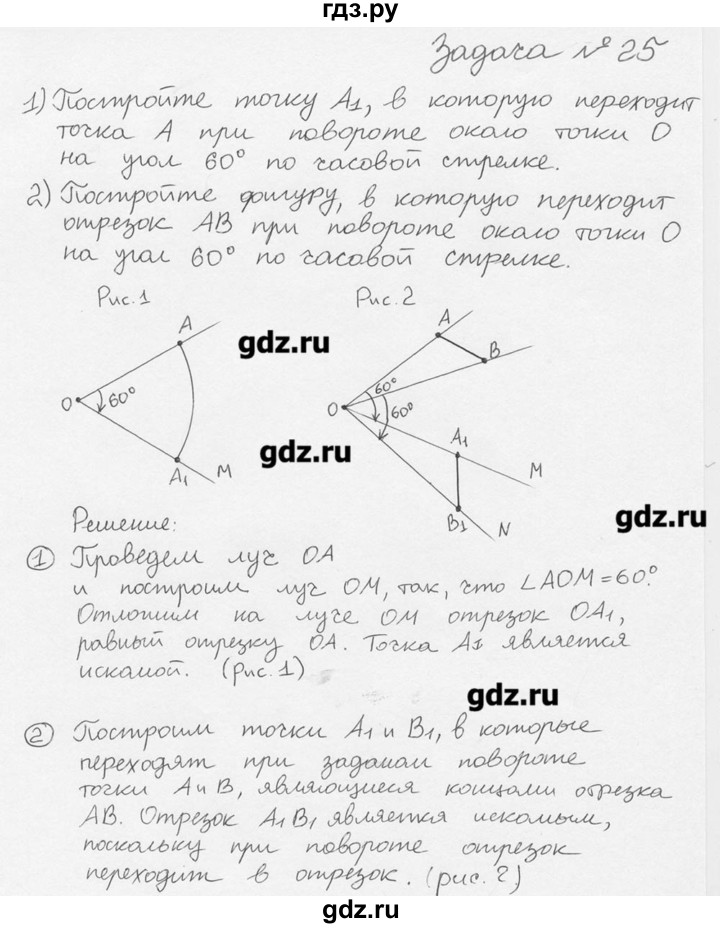 гдз.ру
Задача № 25
1) Постройте точку A1, в которую переходит
точка A при повороте около точки O
на угол 60° по часовой стрелке.
2) Постройте фигуру, в которую переходит
отрезок AB при повороте около точки O
на угол 60° по часовой стрелке.
Рис.1 Рис.2
A
A
gdz.ru
B
O 60°
60°
O 60°
gdz.ru
A1 M
A1 M
gdz.ru
B1 N
Решение:
1 Проведем луч OA
и построим луч OM, так, что ∠AOM=60°.
Отложим на луче OM отрезок OA1,
равный отрезку OA. Точка A1 является
искомой. (Рис.1)
gdz.ru
2 Построим точки A1 и B1, в которые
переходят при заданом повороте
точки A и B, являющиеся концами отрезка
AB. Отрезок A1B1 является искомым,
поскольку при повороте отрезок
переходит в отрезок. (рис.2)
gdz.ru